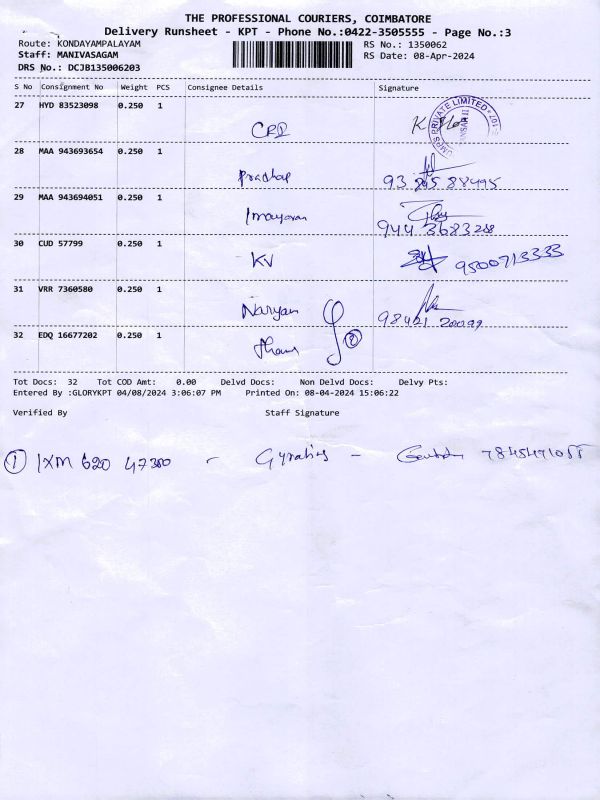 THE PROFESSIONAL COURIERS, COIMBATORE
Delivery Runsheet - KPT - Phone No.:0422-3505555 - Page No.:3
Route: KONDAYAMPALAYAM
RS No.: 1350062
Staff: MANIVASAGAM
RS Date: 08-Apr-2024
DRS No.: DCJB135006203
S No Consignment No Weight PCS Consignee Details Signature
27 HYD 83523098 0.250 1
CPI
PRIVATE LIMITED
28 MAA 943693654 0.250 1
Pradhap
29 MAA 943694051 0.250 1
944 3683288
30 CUD 57799 0.250 1
KV 9500713333
31 VRR 7360580 0.250 1
Naryan
98421 20099
32 EDQ 16677202 0.250 1
Tot Docs: 32 Tot COD Amt: 0.00 Delvd Docs: Non Delvd Docs: Delvy Pts:
Entered By :GLORYKPT 04/08/2024 3:06:07 PM Printed On: 08-04-2024 15:06:22
Verified By Staff Signature
① IXM 620 47300 -